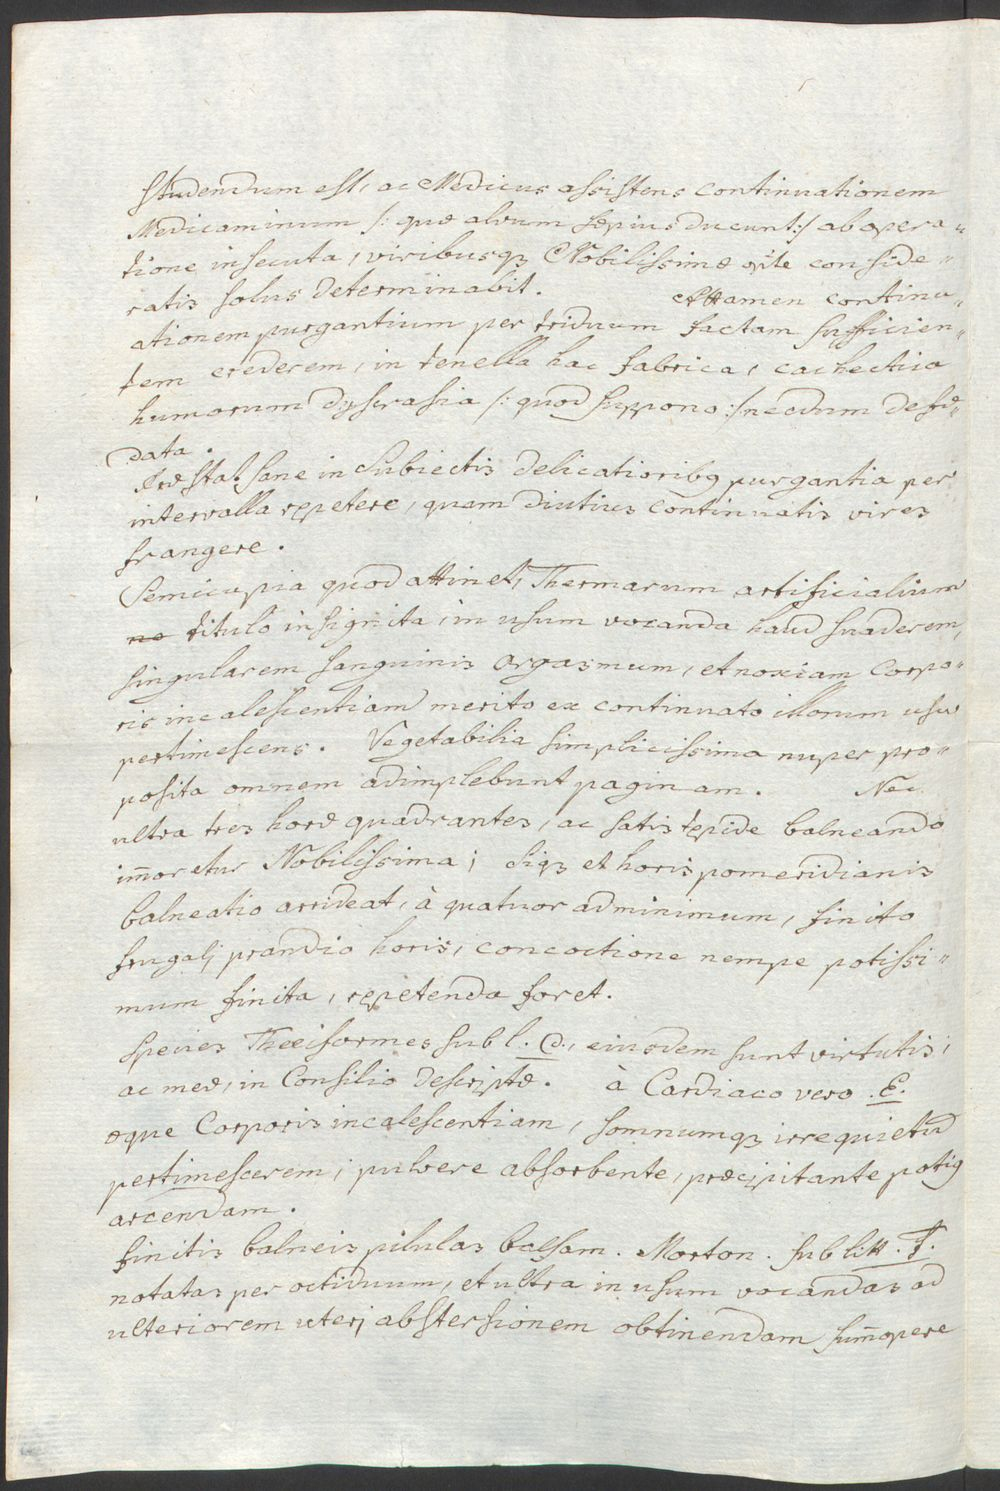 Studendum est, ac Medicus assistens continuationem
Medicaminum /: quæ alvum sæpius ducunt :/ ab opera„
tione insecuta, viribusq3 Nobilissimæ rite conside„
ratis solus determinabit. Attamen continu„
ationem purgantium per triduum factam sufficien„
tem crederem, in tenella hac fabrica, cachectica
humorum dyscrasia /: quod suppono :/ necdum desæ„
data.
Præstat sane in subiectis delicatioribq purgantia per
intervalla repetere, quam diutius continuatis vires
frangere.
Semicupia quod attinet, Thermarum artificialium
ne titulo insignita, in usum vocanda haud suaderem,
singularem sanguinis orgasmum, et noxiam Corpo„
ris incalescentiam merito ex continuato illorum usu
pertimescens. Vegetabilia simplicissima nuper pro„
posita omnem adimplebunt paginam. Nec
ultra tres horæ quadrantes, ac satis tepide balneando
im̄oretur Nobilissima; siq3 et horis pomeridianis
balneatio arrideat, à quatuor adminimum, finito
frugalj prandio horis, concoctione nempe potissi„
mum finita, repetenda foret.
Species Theeiformes sub l. D., eiusdem sunt virtutis,
ac meæ, in Consilio descriptæ. à Cardiaco vero .E.
æque Corporis incalescentiam, somnumq3 irrequietū
pertimescerem; pulvere absorbente, præcipitante potiq
arcendam.
Finitis balneis pilulas balsam. Morton. sub litt. F.
notatas per octiduum, et ultra in usum vocandas ad
ulteriorem uterj abstersionem obtinendam sum̄opere